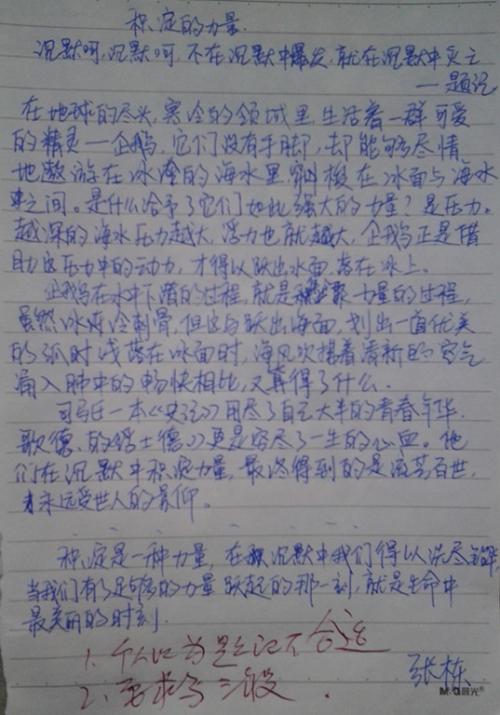 积淀的力量.
沉默呵,沉默呵,不在沉默中爆发,就在沉默中灭亡
——题记
在地球的尽头,寒冷的领域里,生活着一群可爱
的精灵—企鹅,它们没有手脚,却能够尽情
地遨游在冰冷的海水里,穿梭在冰面与海水
之间。是什么给予了它们如此强大的力量?是压力。
越深的海水压力越大,浮力也就越大,企鹅正是借
助这压力中的动力,才得以跃出水面,落在冰上。
企鹅在水中下潜的过程,就是积聚力量的过程,
虽然冰疼冷刺骨,但这与跃出海面,划出一道优美
的弧时线落在冰面时,海风吹搓着清新的空气
涌入肺中的畅快相比,又算得了什么.
司马迁一本《史记》用尽了自己大半的青春年华.
歌德、的浮士德》更是穷尽了一生的心血。他
们在沉默中积淀力量,最终得到的是流芳百世,
永远受世人的景仰。
积淀是一种力量,在沉默中我们得以洗尽铅华,
当我们有了足够的力量跃起的那一刻,就是生命中
最美丽的时刻.
1.个人以为题记不合适
2.要求写三段.
张栋
M&G晨光®